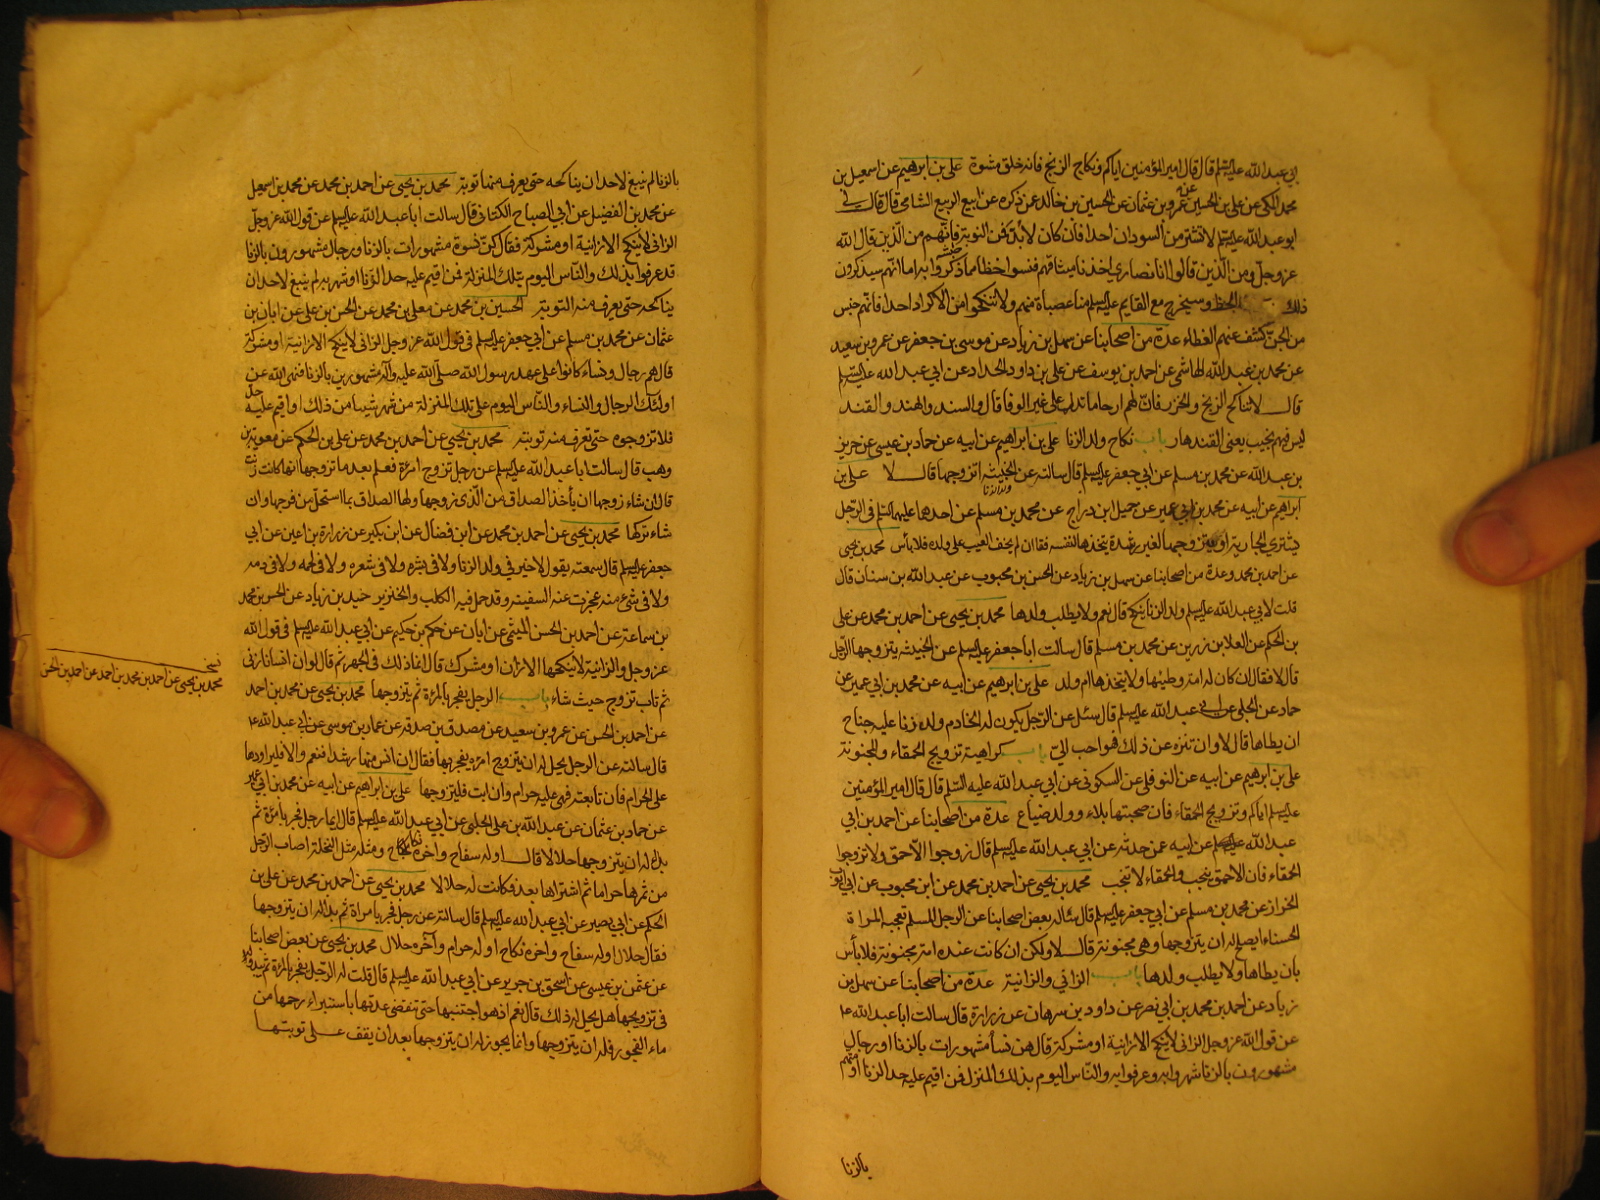 ابي عبد الله عليه السلم قال قال امير المؤمنين اياكم ونكاح الزنج فانه خلق مشوة علي بن ابرهيم عن اسمعيل بن
محمد المكي عن علي بن الحسين عن عمرو بن عثمان عن الحسين بن خالد عمن ذكره عن ابي الربيع الشامي قال قال لي
ابو عبد الله عليه السلم لا تشتر من السودان احدا فان كان لا بد فمن النوبة فانهم من الذين قال الله
عز وجل ومن الذين قالوا انا نصارى اخذنا ميثاقهم فنسوا حظا مما ذكروا به اما انهم سيذكرون
ذلك الحظ وسيخرج مع القايم عليه السلم منا عصابة منهم ولا تنكحوا من الاكراد احدا فانهم جنس
من الجن كشف عنهم الغطاء عدة من اصحابنا عن سهل بن زياد عن موسى بن جعفر عن عمرو بن سعيد
عن محمد بن عبد الله الهاشمي عن احمد بن يوسف عن علي بن داود الحداد عن ابي عبد الله عليه السلم
قال لا تناكح الزنج والخزر فان لهم ارحاما تدل على غير الوفا قال والسند والهند والقند
ليس فيهم نجيب يعني القندهار باب نكاح ولد الزنا علي بن ابراهيم عن ابيه عن حماد بن عيسى عن حريز
بن عبد الله عن محمد بن مسلم عن ابي جعفر عليه السلم قال سالته عن الخبيثة اتزوجها قال لا علي بن
ولد الزنا
ابراهيم عن ابيه عن محمد بن ابي عمير عن جميل ابن دراج عن محمد بن مسلم عن احدهما عليهما السلم في الرجل
يشتري الجارية او يتزوجها لغير رشدة يتخذها لنفسه فقال ان لم يخف العيب على ولده فلا بأس محمد بن يحيى
عن احمد بن محمد وعدة من اصحابنا عن سهل بن زياد عن الحسن بن محبوب عن عبد الله بن سنان قال
قلت لابي عبد الله عليه السلم ولد الزنا ينكح قال نعم ولا يطلب ولدها محمد بن يحيى عن احمد بن محمد عن علي
بن الحكم عن العلا بن رزين عن محمد بن مسلم قال سالت ابا جعفر عليه السلم عن الخبيثة يتزوجها الرجل
قال لا فقال ان كان له امة وطيها ولا يتخذها ام ولد علي بن ابرهيم عن ابيه عن محمد بن ابي عمير عن
حماد عن الحلبي عن ابي عبد الله عليه السلم قال سئل عن الرجل يكون له الخادم ولد زنا عليه جناح
ان يطاها قال لا وان تنزه عن ذلك فهو احب الي باب كراهية تزويج الحمقاء والمجنونة
علي بن ابرهيم عن ابيه عن النوفلي عن السكوني عن ابي عبد الله عليه السلم قال قال امير المؤمنين
عليه السلم اياكم وتزويج الحمقاء فان صحبتها بلاء وولدها ضياع عدة من اصحابنا عن احمد بن ابي
عبد الله عن ابيه عمن حدثه عن ابي عبد الله عليه السلم قال زوجوا الاحمق ولا تزوجوا
الحمقاء فان الاحمق ينجب والحمقاء لا تنجب محمد بن يحيى عن احمد بن محمد عن ابن محبوب عن ابي ايوب
الخزاز عن محمد بن مسلم عن ابي جعفر عليه السلم قال سئاله بعض اصحابنا عن الرجل المسلم تعجبه المراة
الحسناء ايصلح له ان يتزوجها وهي مجنونة قال لا ولكن ان كانت عنده امة مجنونة فلا بأس
بان يطاها ولا يطلب ولدها باب الزاني والزانية عدة من اصحابنا عن سهل بن
زياد عن احمد بن محمد بن ابي نصر عن داود بن سرحان عن زرارة قال سالت ابا عبد الله ع
عن قول الله عز وجل الزاني لا ينكح الا زانية او مشركة قال هن نسآ مشهورات بالزنا او رجال
مشهورون بالزنا شهروا به وعرفوا به والناس اليوم بذلك المنزل فمن اقيم عليه حد الزنا او متهم
بالزنا
بالزنا لم ينبغ لاحد ان يناكحه حتى يعرف منه توبة محمد بن يحيى عن احمد بن محمد عن محمد بن اسمعيل
عن محمد بن الفضيل عن ابي الصباح الكناني قال سالت ابا عبد الله عليه السلم عن قول الله عز وجل
الزاني لا ينكح الا زانية او مشركة فقال كن نسوة مشهورات بالزنا ورجال مشهورون بالزنا
قد عرفوا بذلك والناس اليوم بتلك المنزلة فمن اقيم عليه حد الزنا او شهر به لم ينبغ لاحد ان
يناكحه حتى يعرف منه التوبة الحسين بن محمد عن معلى بن محمد عن الحسن بن علي عن ابان بن
عثمان عن محمد بن مسلم عن ابي جعفر عليه السلم في قول الله عز وجل الزاني لا ينكح الا زانية او مشركة
قال هم رجال ونساء كانوا على عهد رسول الله صلى الله عليه وآله مشهورين بالزنا فنهى الله عن
اولئك الرجال والنساء والناس اليوم على تلك المنزلة من شهر شيئا من ذلك او اقيم عليه حد
فلا تزوجوه حتى تعرف منه توبة محمد بن يحيى عن احمد بن محمد عن علي بن الحكم عن معوية بن
وهب قال سالت ابا عبد الله عليه السلم عن رجل تزوج امرءة فعلم بعد ما تزوجها انها كانت زنت
قال ان شاء زوجها ان يأخذ الصداق من الذي زوجها ولها الصداق بما استحل من فرجها وان
شاء تركها محمد بن يحيى عن احمد بن محمد عن ابن فضال عن ابن بكير عن زرارة بن اعين عن ابي
جعفر عليه السلم قال سمعته يقول لا خير في ولد الزنا ولا في بشره ولا في شعره ولا في لحمه ولا في دمه
ولا في شيء منه عجزت عنه السفينة وقد حمل فيها الكلب والخنزير حميد بن زياد عن الحسن بن محمد
بن سماعة عن احمد بن الحسن الميثمي عن ابان عن حكم بن حكيم عن ابي عبد الله عليه السلم في قول الله
عز وجل والزانية لا ينكحها الا زان او مشرك قال انما ذلك في الجهر ثم قال لو ان انسانا زنى
ثم تاب تزوج حيث شاء باب الرجل يفجر بالمرءة ثم يتزوجها محمد بن يحيى عن محمد بن احمد
عن احمد بن الحسن عن عمرو بن سعيد عن مصدق بن صدقة عن عمار بن موسى عن ابي عبد الله ع
قال سالته عن الرجل يحل له ان يتزوج امرءة يفجر بها فقال ان انس منها رشدا فنعم والا فليراودها
على الحرام فان تابعته فهي عليه حرام وان ابت فليتزوجها علي بن ابراهيم عن ابيه عن محمد بن ابي عمير
عن حماد بن عثمان عن عبد الله بن علي الحلبي عن ابي عبد الله عليه السلم قال ايما رجل فجر بامرءة ثم
بدا له ان يتزوجها حلالا قال اوله سفاح واخره نكاح ومثله مثل النخلة اصاب الرجل
من ثمرها حراما ثم اشتراها بعد فكانت له حلالا محمد بن يحيى عن احمد بن محمد عن علي بن
الحكم عن ابي بصير عن ابي عبد الله عليه السلم قال سالته عن رجل فجر بامراة ثم بدا له ان يتزوجها
فقال حلال اوله سفاح واخره نكاح اوله حرام وآخره حلال محمد بن يحيى عن بعض اصحابنا
عن عثمن بن عيسى عن اسحق بن جرير عن ابي عبد الله عليه السلم قال قلت له الرجل يفجر بالمرءة ثم يبدو له
في تزويجها هل يحل له ذلك قال نعم اذ هو اجتنبها حتى تنقضي عدتها باستبراء رحمها من
ماء الفجور فله ان يتزوجها وانما يجوز له ان يتزوجها بعد ان يقف على توبتها
نسخ
محمد بن يحيى عن احمد بن محمد بن احمد عن احمد بن الحسن